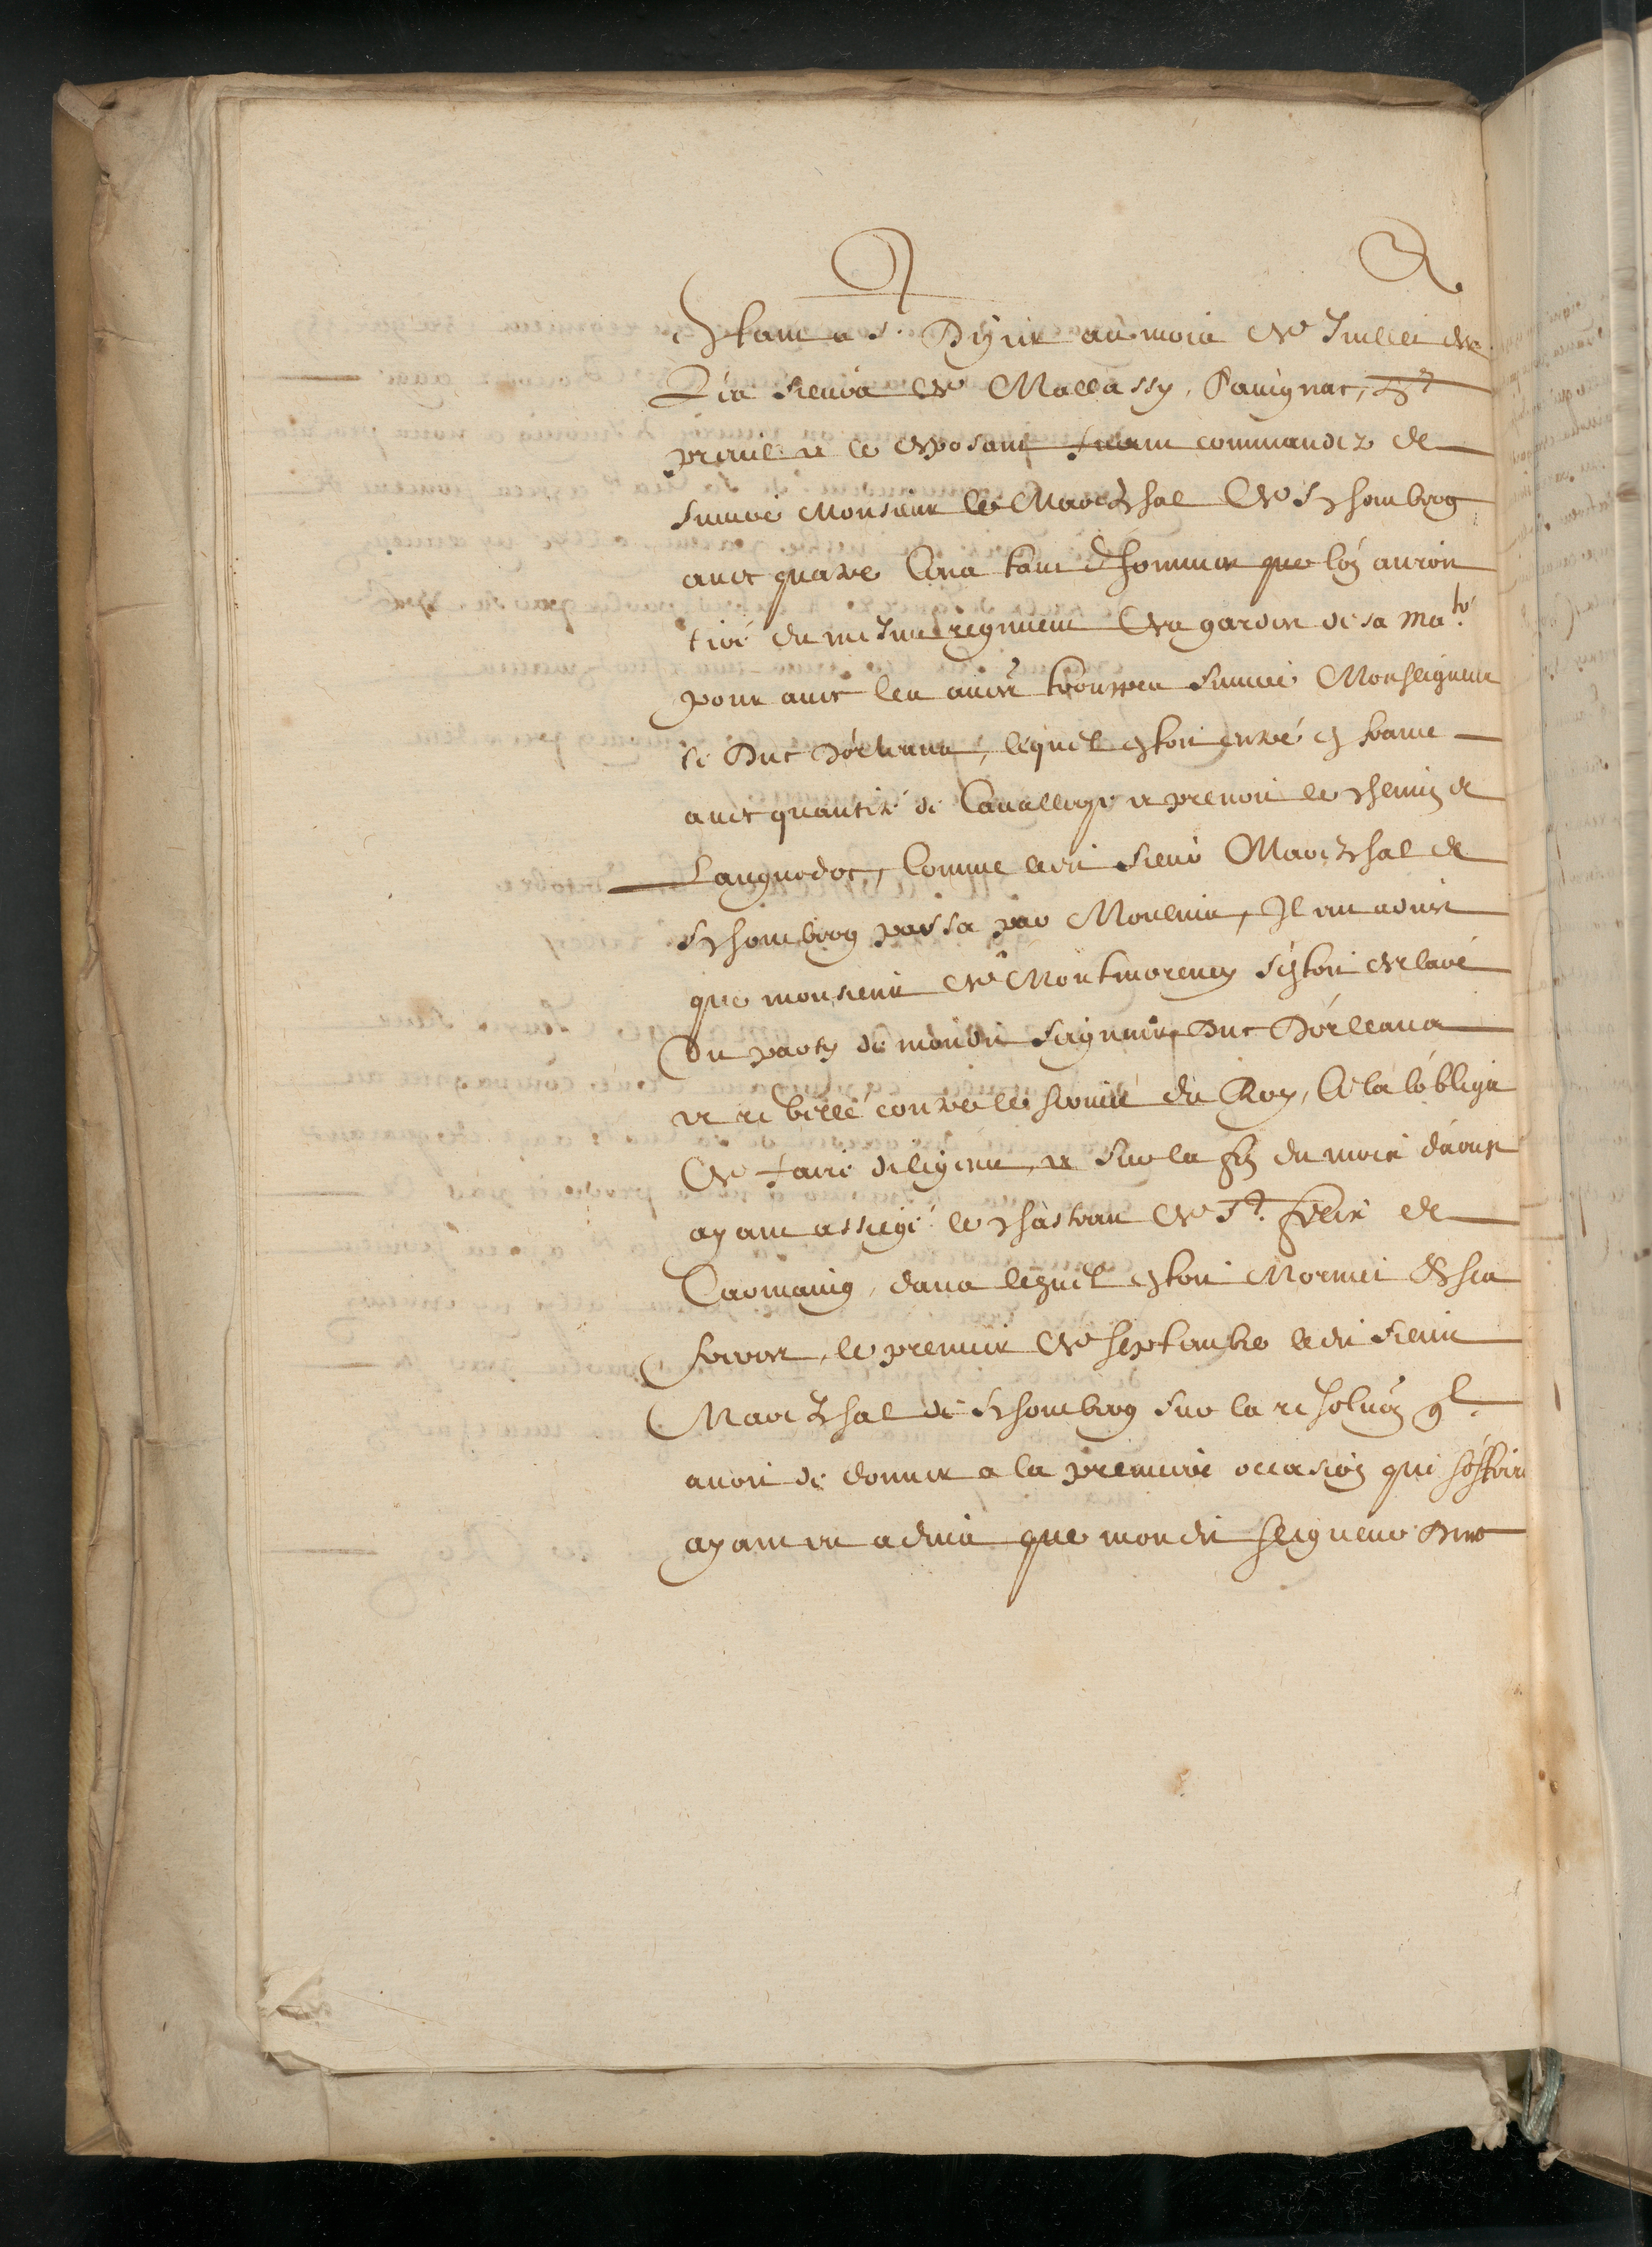 Estant a St. Dizier au mois de Juillet de
les sieurs de Mallassy, Pauignac, St
preuil et le exposant furent commandez de
suiure Monsieur le Mareschal de Schombrog
auec quatre Cens tant d'hommes que lon auroit
tiré du mesme regiment des gardes de sa Mate.
pour auec les autres trouppes suiure Monseigneur
le Duc Dorleans, lequel estoit entré en france
auec quantité de Cauallerye et prenoit le chemin de
Languedoc, Comme ledit sieur Mareschal de
Schombrog passa par Moulins, Il eut aduis
que monsieur de Montmorency s'estoit declaré
du party de mondit seigneur Duc Dorleans
et rebellé contre le seruice du Roy, Cela lobligea
de faire diligence, et sur la fin du mois d'aoust
ayant assiegé le chasteau de St. felix de
Carmaing, dans lequel estoit
le premier de septembre ledit sieur
Mareschal de Schombrog sur la resoluon ql
auoit de donner a la premiere occasion qui soffriroit
ayant eu aduis que mondit seigneur Duc